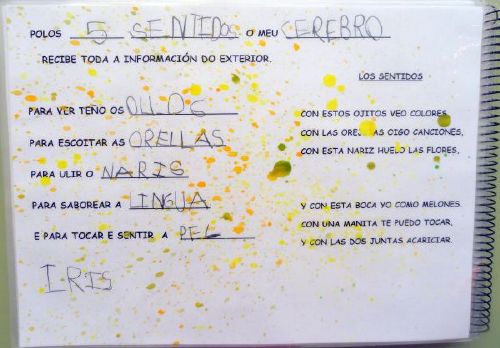 POLOS 5 SENTIDOS O MEU CEREBRO
RECIBE TODA A INFORMACIÓN DO EXTERIOR.
PARA VER TEÑO OS OLLOS
PARA ESCOITAR AS ORELLAS
PARA ULIR O NARIS
PARA SABOREAR A LINGUA
E PARA TOCAR E SENTIR A PEL
IRIS
LOS SENTIDOS
CON ESTOS OJITOS VEO COLORES,
CON LAS OREJITAS OIGO CANCIONES,
CON ESTA NARIZ HUELO LAS FLORES,
Y CON ESTA BOCA YO COMO MELONES.
CON UNA MANITA TE PUEDO TOCAR,
Y CON LAS DOS JUNTAS ACARICIAR.